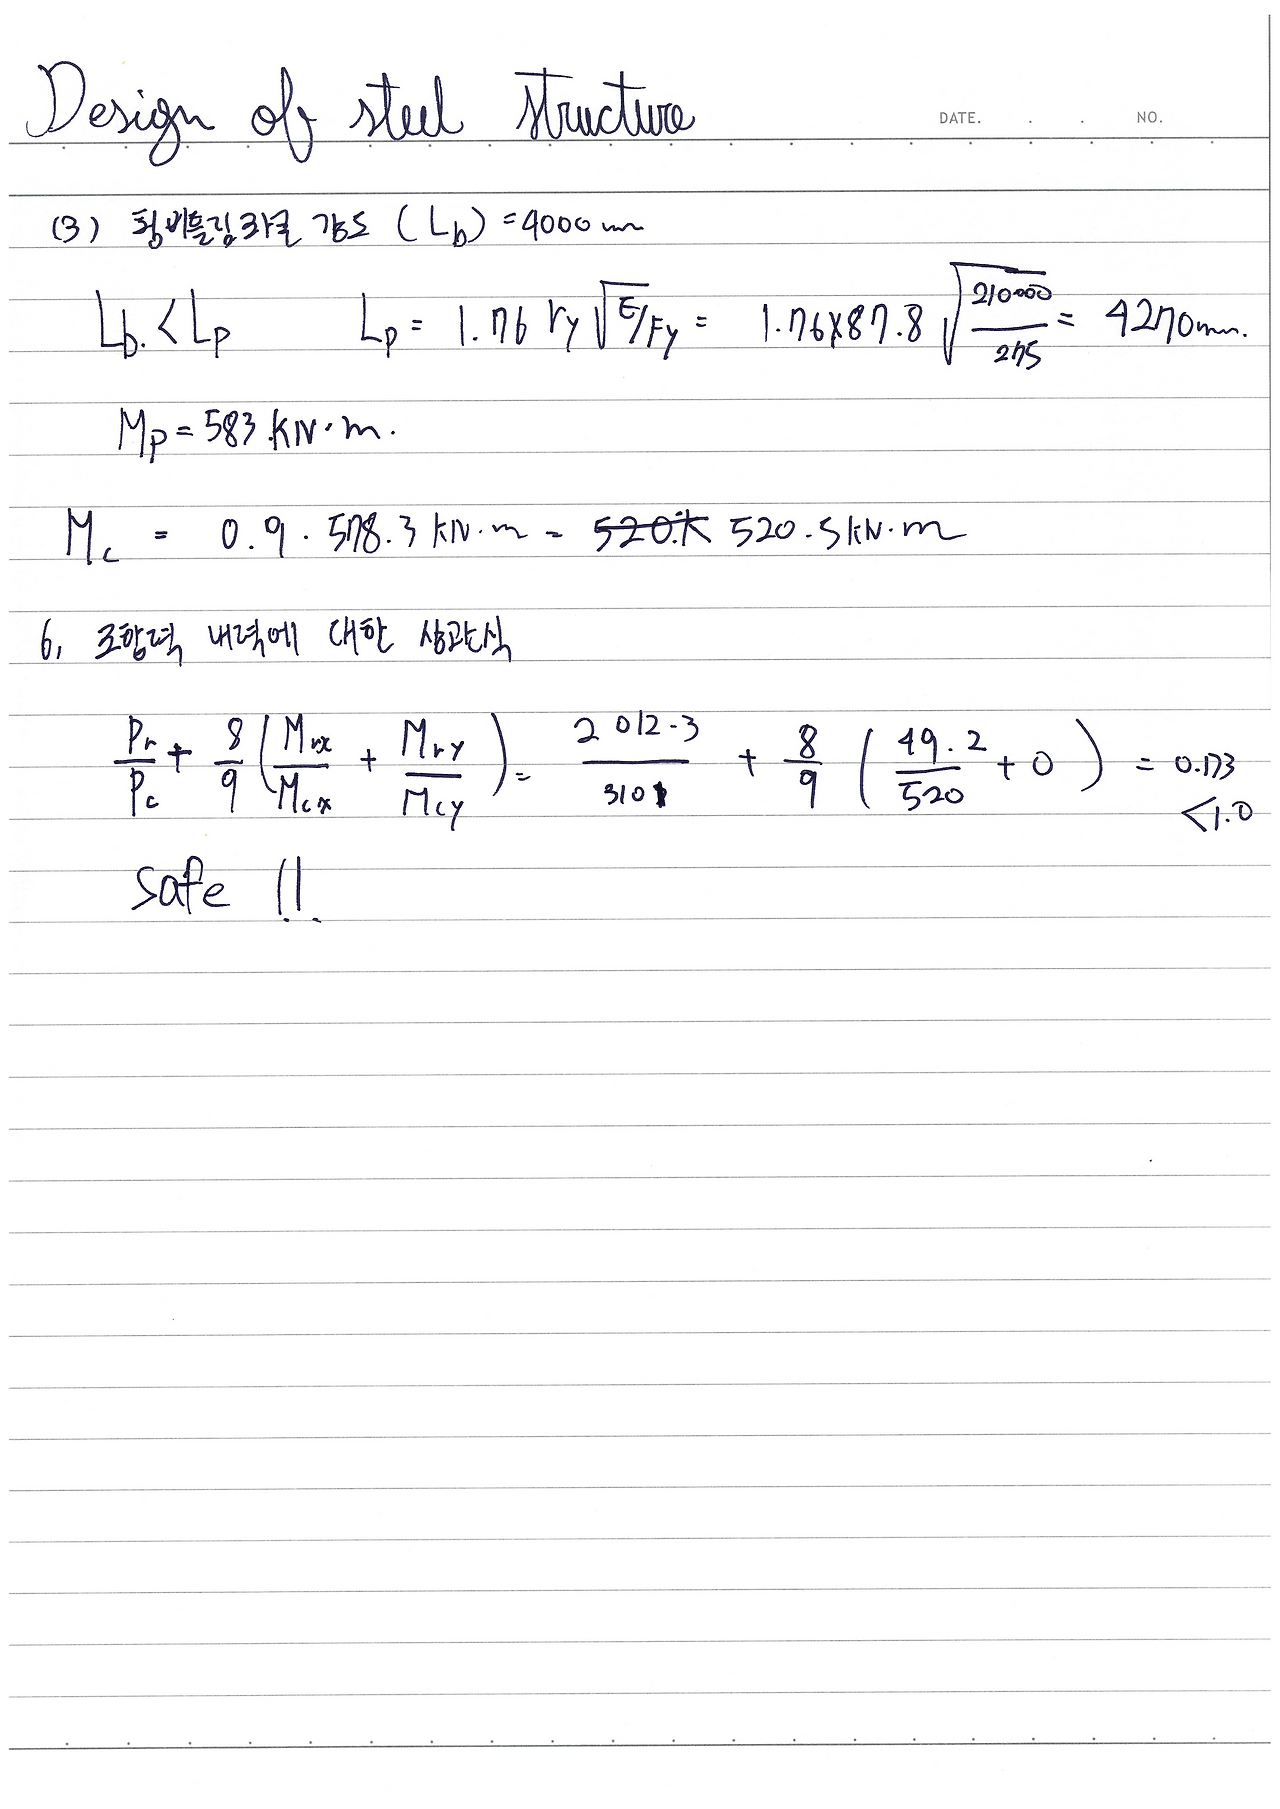 Design of steel structure
DATE. . . NO.
(3) 횡비틀림좌굴 강도 (Lb) = 4000mm
Lb. < Lp Lp = 1.76 ry √E/Fy = 1.76×87.8 √210000/275 = 4270mm.
Mp = 583 kN·m.
Mc = 0.9 · 578.3 kN·m = 520.k 520.5kN·m
6. 조합력 내력에 대한 상관식
Pr/Pc + 8/9 (Mrx/Mcx + Mry/Mcy) = 2012.3/3101 + 8/9 (49.2/520 + 0) = 0.173
<1.0
safe !!